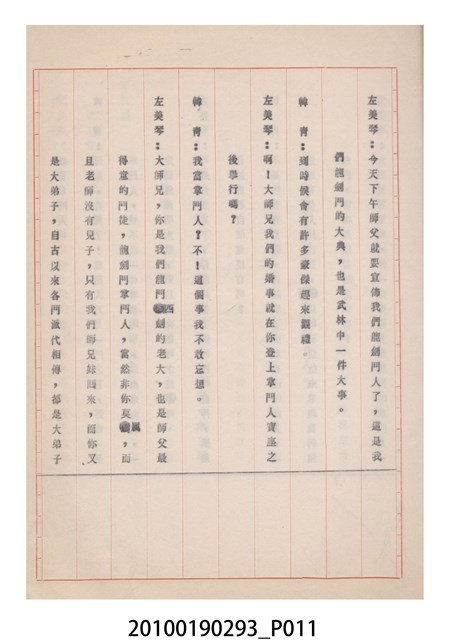 左美琴：今天下午師父就要宣佈我們龍劍門人了，這是我
們龍劍門的大典，也是武林中一件大事。
韓　青：到時候會有許多豪傑趕來觀禮。
左美琴：啊！大師兄我們的婚事就在你登上掌門人寶座之
後舉行嗎？
韓　青：我當掌門人？不！這個事我不敢忘想。
左美琴：大師兄，你是我們龍門劍的老大，也是師父最
得意的門徒，龍劍門掌門人，當然非你莫屬，而
且老師沒有兒子，只有我們師兄妹而來，而你又
是大弟子，自古以來各門派代相傳，都是大弟子
20100190293_P011